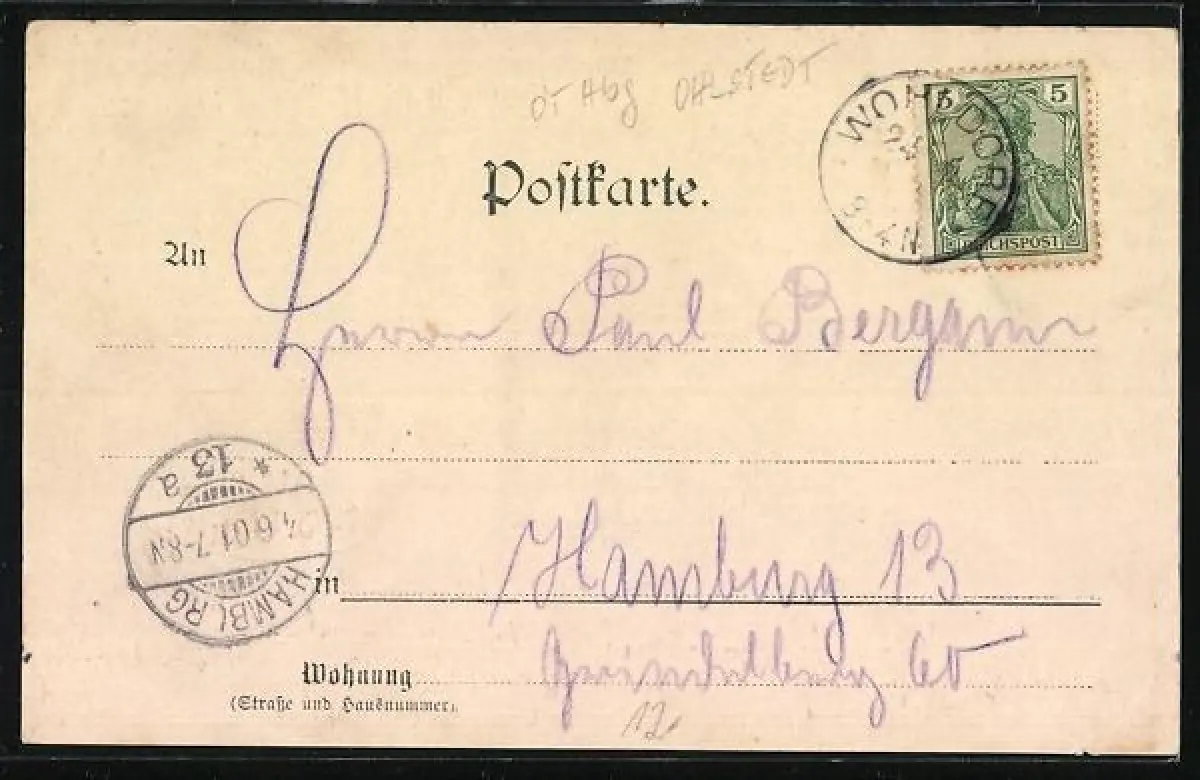 OT Hbg OHLSTEDT
WOHLDORF
24
3-4N
5 5
REICHSPOST
Postkarte.
An
Herrn Paul Bergann
* 13 a
24.6.01.7-8N
HAMBURG
in Hamburg 13
Wohnung Grindelberg 60
(Straße und Hausnummer).
12.